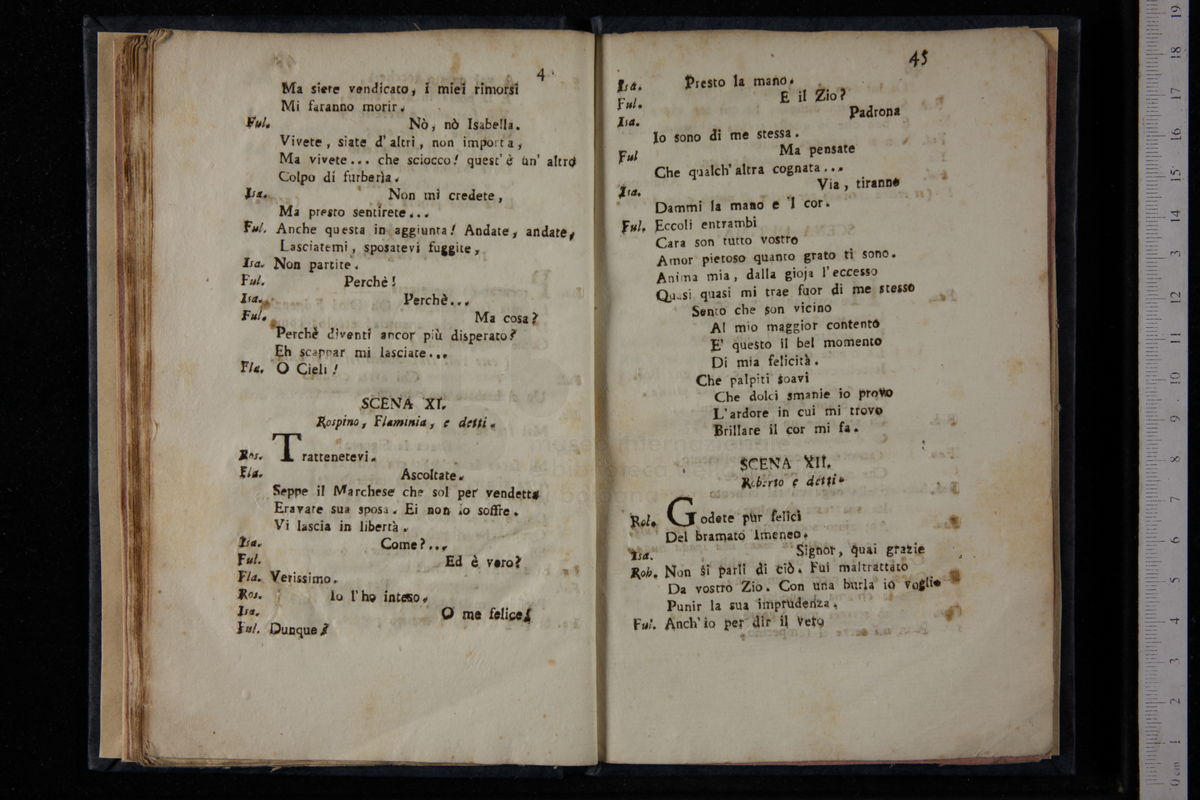 4
Ma siete vendicato, i miei rimorsi
Mi faranno morir.
Ful. Nò, nò Isabella.
Vivete, siate d' altri, non importa,
Ma vivete... che sciocco! quest' è un' altro
Colpo di furberìa.
Isa. Non mi credete,
Ma presto sentirete...
Ful. Anche questa in aggiunta! Andate, andate,
Lasciatemi, sposatevi fuggite,
Isa. Non partite.
Ful. Perchè!
Isa. Perchè...
Ful. Ma cosa?
Perchè diventi ancor più disperato?
Eh scappar mi lasciate...
Fla. O Cieli!
SCENA XI.
Rospino, Flaminia, e detti.
Ros. Trattenetevi.
Fla. Ascoltate.
Seppe il Marchese che sol per vendetta
Eravate sua sposa. Ei non lo soffre.
Vi lascia in libertà.
Isa. Come?...
Ful. Ed è vero?
Fla. Verissimo.
Ros. Io l' ho inteso.
Isa. O me felice!
Ful. Dunque?
45
Isa. Presto la mano.
Ful. E il Zio?
Isa. Padrona
Io sono di me stessa.
Ful Ma pensate
Che qualch' altra cognata...
Isa. Via, tiranno
Dammi la mano e 'l cor.
Ful. Eccoli entrambi
Cara son tutto vostro
Amor pietoso quanto grato ti sono.
Anima mia, dalla gioja l' eccesso
Quasi quasi mi trae fuor di me stesso
Sento che son vicino
Al mio maggior contento
E' questo il bel momento
Di mia felicità.
Che palpiti soavi
Che dolci smanie io provo
L' ardore in cui mi trovo
Brillare il cor mi fa.
SCENA XII.
Roberto e detti.
Rob. Godete pur felici
Del bramato Imeneo.
Isa. Signor, quai grazie
Rob. Non si parli di ciò. Fui maltrattato
Da vostro Zio. Con una burla io voglio
Punir la sua imprudenza.
Ful. Anch' io per dir il vero